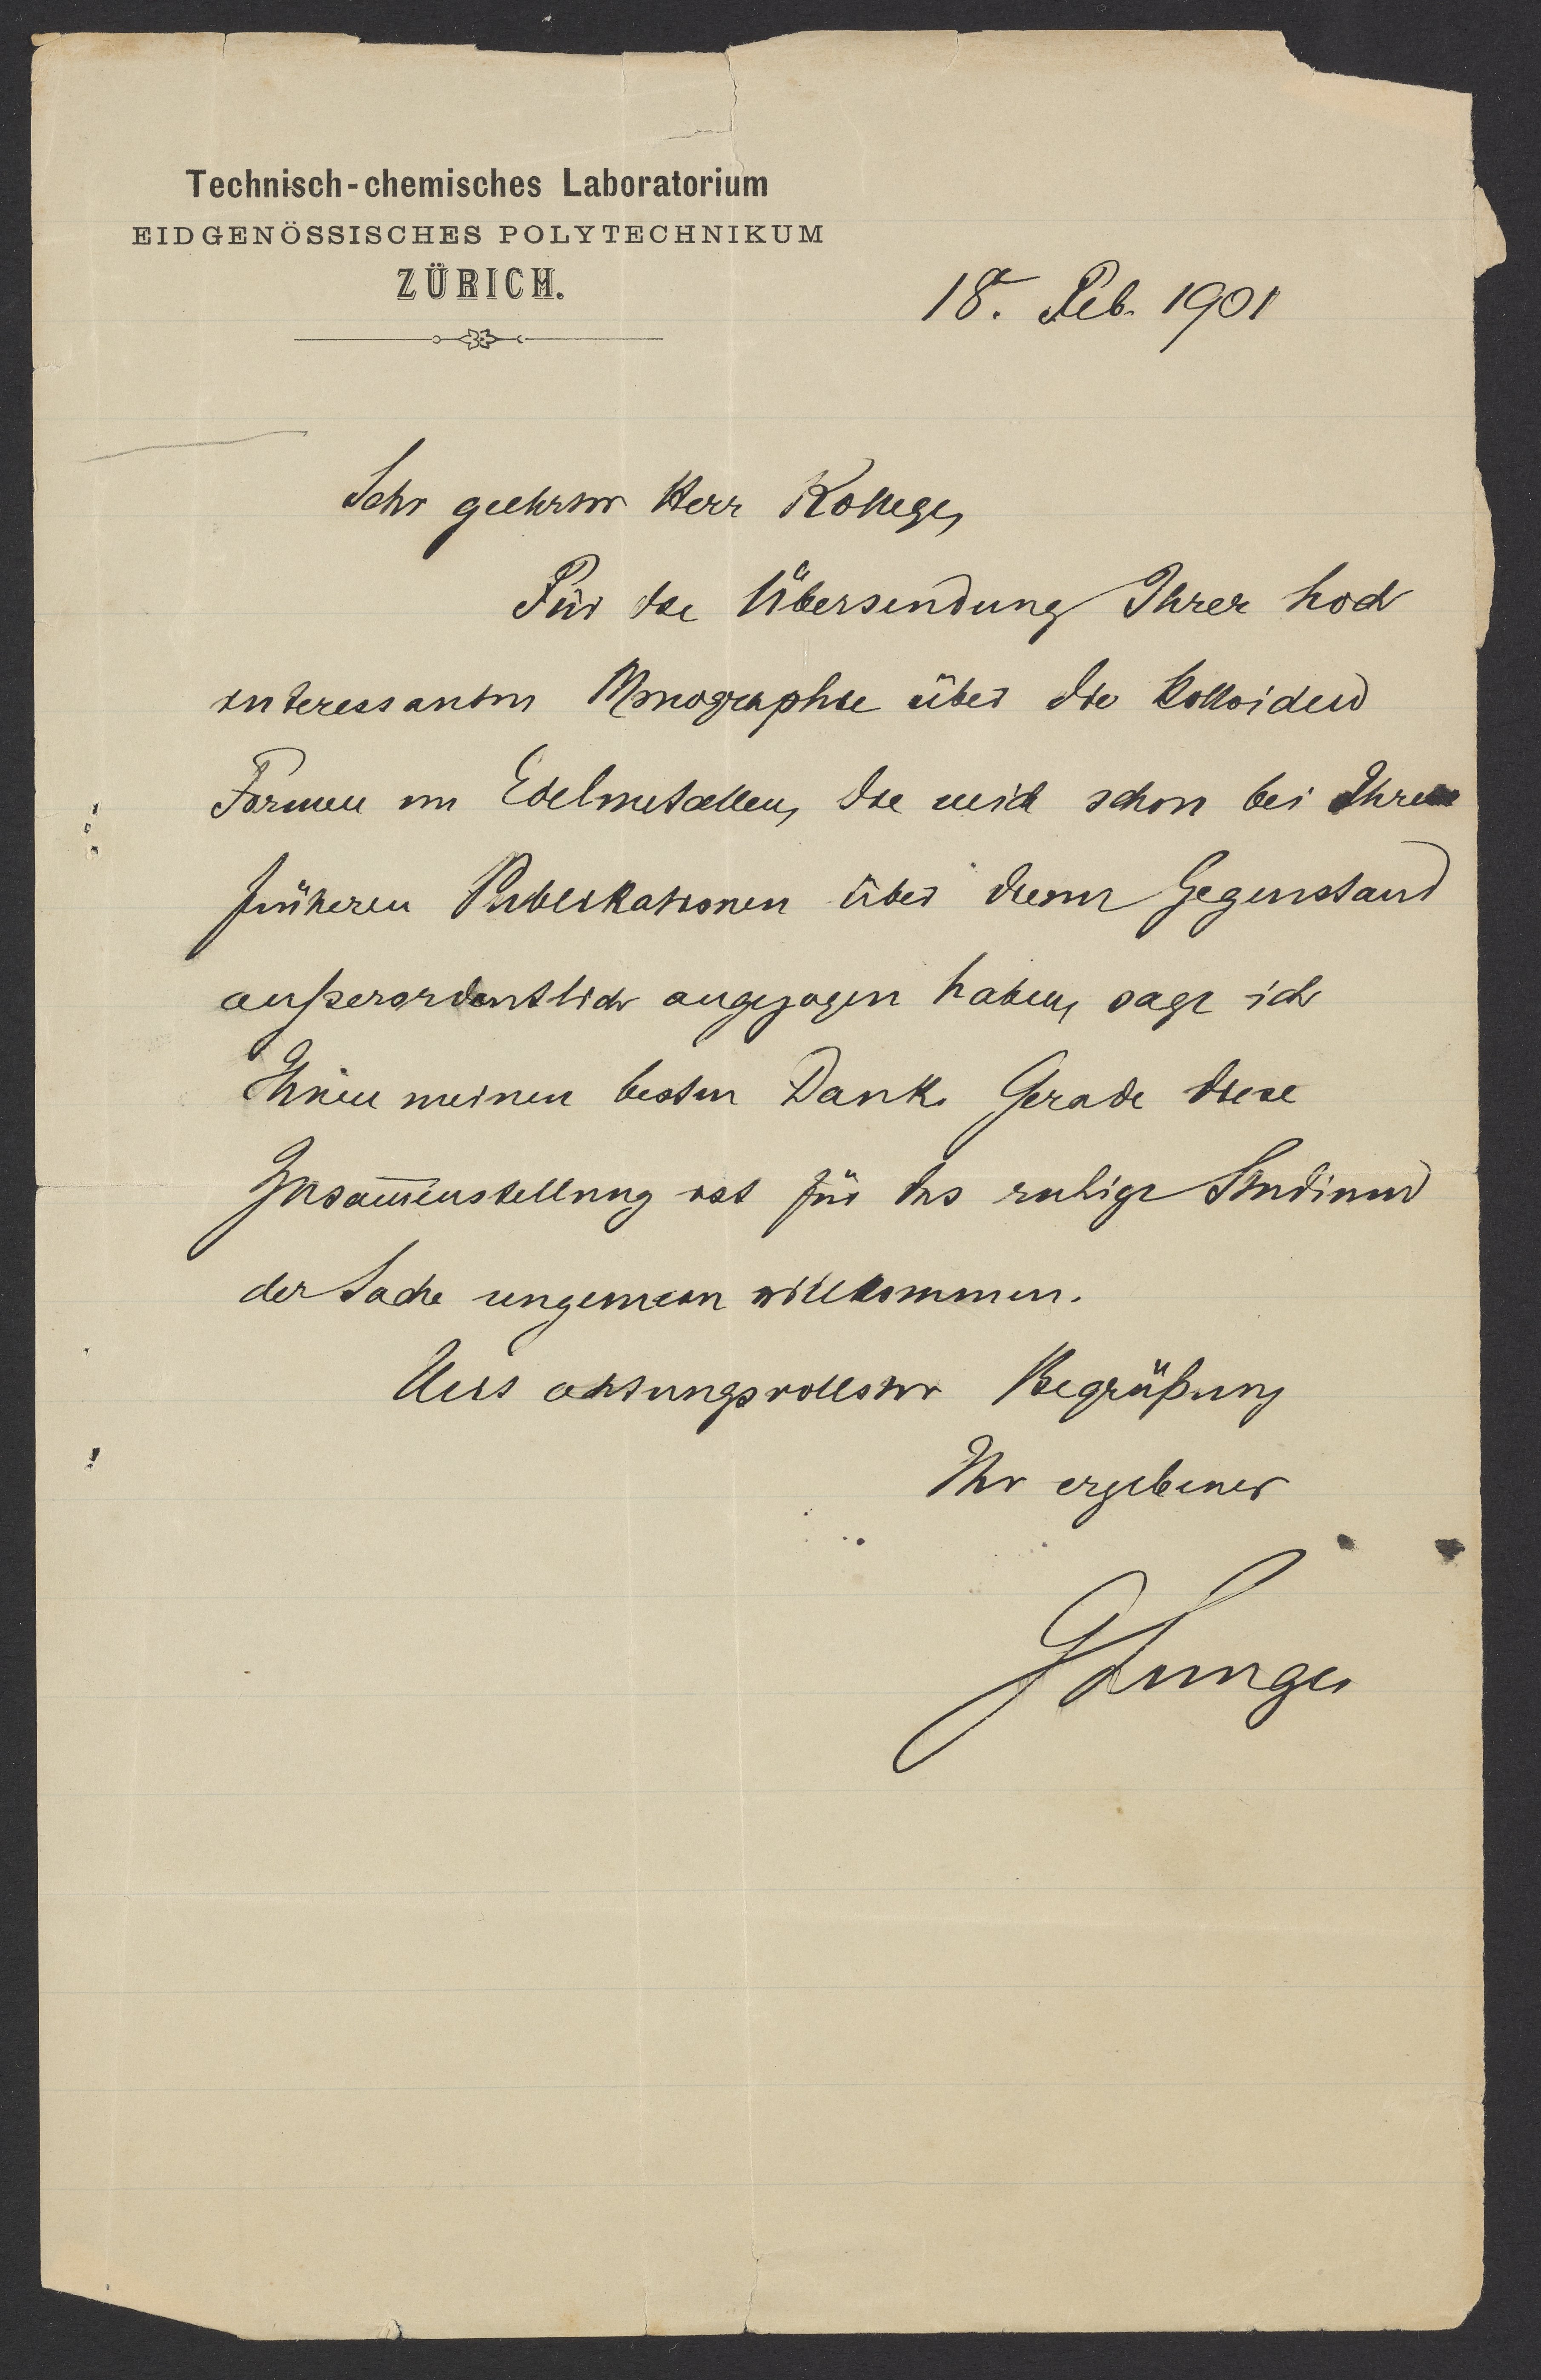 Technisch-chemisches Laboratorium
EIDGENÖSSISCHES POLYTECHNIKUM
ZÜRICH.
18. Feb. 1901
Sehr geehrter Herr Kollege,
Für die Übersendung Ihrer hoch
interessanten Monographie über die kolloiden
Formen von Edelmetallen, die mich schon bei Ihren
früheren Publikationen über diesen Gegenstand
außerordentlich angezogen haben, sage ich
Ihnen meinen besten Dank. Gerade diese
Zusam̅enstellung ist für das ruhige Studium
der Sache ungemein willkommen.
Mit achtungsvollster Begrüßung
Ihr ergebener
G Lunge